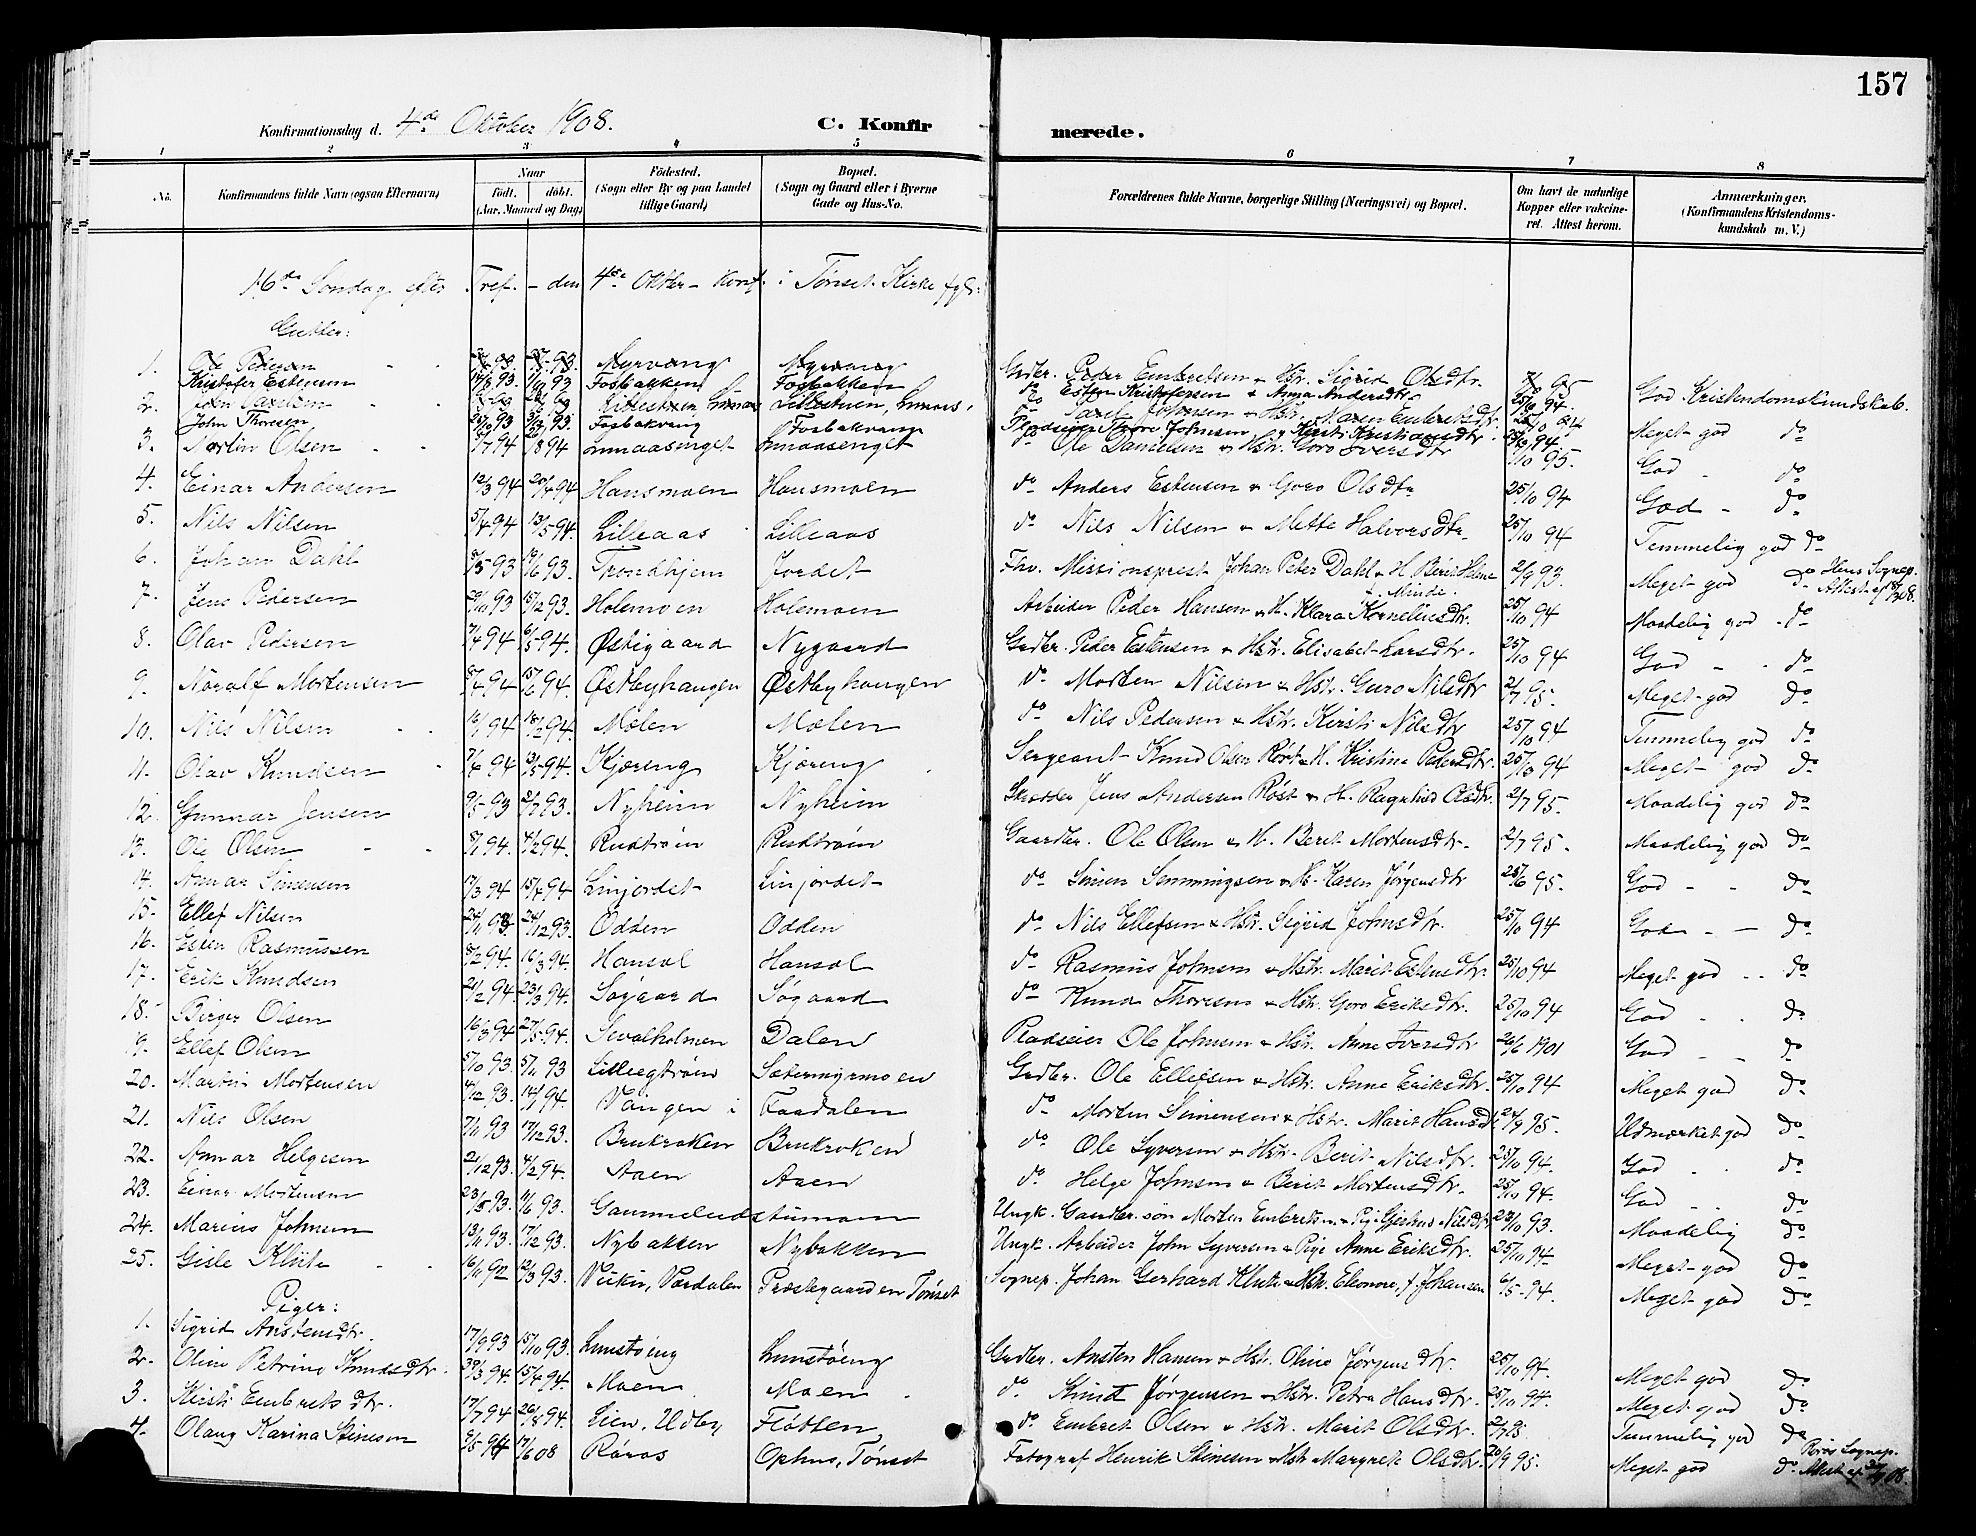 157
Konfirmationsdag d. 4de Oktober 1908. C. Konfirmerede.
1 2 3 4 5 6 7 8
No. Konfirmandens fulde Navn (ogsaa Efternavn) Naar født. døbt. (Aar, Maaned og Dag) Fødested. (Sogn eller By og paa Landet tillige Gaard) Bopæl. (Sogn og Gaard eller i Byerne Gade og Hus-No. Forældrenes fulde Navne, borgerlige Stilling (Næringsvei) og Bopæl. Om havt de naturlige Kopper eller vakcineret. Attest herom. Anmærkninger. (Konfirmandens Kristendomskundskab m. V.)
16de Søndag efter Tref. - den 4de Oktbr - Konf. i Tønset Kirke fgl:
Gutter:
1. Ole Pedersen Myrvang Myrvang Grdbr. Peder Embretsen & Hstr. Sigrid Olsdtr.
Kristofer Estensen 93. 93 Fosbakken Fosbakken do Esten Kristofersen & Anna Andersdtr. 25/10 94. God Kristendomskundskab.
2. Lillestuen, Lillestuen, do Johnsen & Hstr. Maren Embretsdtr.
John Thoresen 93 93. Fosbakvang Fosbakvang Pladseier Thore Johnsen & Kirsti Kristiansdtr. 25/10 94 Meget god do
3. Olsen 94 94 do Ole Danielsen & Hstr. Goro Iversdtr 95. God do
4. Einar Andersen 12/3 94 20/4 94 Hansmoen Hansmoen do Anders Estensen & Goro Olsdtr 25/10 94 God - do
5. Nils Nilsen 5/4 94 13/5 94. Lilleaas Lilleaas do Nils Nilsen & Mette Halvorsdtr. 25/10 94 Temmelig god do
6. Johan Dahl 93 19/6 93. Trondhjem Jordet Fhv. Missionsprest Johan Peter Dahl & H. Berit Helene f. Minde. 2/9 93. Meget god do Hens Sognep. Attest af 1908.
7. Jens Pedersen 29/10 93 15/12 93. Holemoen Holemoen Arbeider Peder Hansen & H. Klara Kornelius dtr. 25/10 94 Maadelig god do
8. Olav Pedersen 7/4 94 6/5 94. Østigaard Nygaard Grdbr. Peder Estensen & Hstr. Elisabet Larsdtr. 25/10 94 God - - do
9. Noralf Mortensen 94 94. Østbyhaugen Østbyhaugen do Morten Nilsen & Hstr. Guro Nilsdtr 2/7 95. Meget god do
10. Nils Nilsen 94 18/2 94. Mælen Mælen do Nils Pedersen & Hstr. Kirsti Nilsdtr 25/10 94 Temmelig god do
11. Olav Knudsen 94 13/5 94. Kjæreng Kjæreng Sergeant Knud Olsen Røst & H. Kristine Pedersdtr. 25/10 94 Meget god do
12. Gunnar Jensen 9/5 93 2/7 93. Nyheim Nyheim Skrædder Jens Andersen Røst & H. Ragnhild Olsdtr. 2/7 95. Maadelig god do
13. Ole Olsen 8/1 94. 4/2 94. Rudtrøen Rudtrøen Gaardbr. Ole Olsen & H. Berit Mortensdtr. 2/7 95. Maadelig god do
14. Simensen 17/3 94 15/4 94 Linjordet Linjordet do Simen Semmingsen & H. Karen Jørgensdtr 25/6 95. God - - do
15. Ellef Nilsen 24/11 93 24/12 93. Odden Odden do Nils Ellefsen & Hstr. Sigrid Johnsdtr. 25/10 94 God - - do
16. Esten Rasmussen 8/2 94. 16/3 94. Hansol Hansol do Rasmus Johnsen & Hstr. Marit Estensdtr. 25/10 94 Meget god - - do
17. Erik Knudsen 21/2 94. 23/3 94. Søgaard Søgaard do Knud Thoresen & Hstr. Goro Eriksdtr. 25/10 94 God - - do
18. Birger Olsen 16/3 94 27/5 94. Sevolholmen Dalen Pladseier Ole Johnsen & Hstr. Anne Iversdtr 26/6 1901 God - - do
19. Ellef Olsen 5/10 93. 5/11 93 Lilleegtrøen Sætermyrmoen Grdbr. Ole Ellefsen & Hstr. Anne Eriksdtr. 25/10 94 Meget god do
20. Martin Mortensen 4/12 93. 14/1 94. Vangen i Faadalen do Morten Simensen & Hstr. Marit Hansdtr 95. Udmærket god do
21. Nils Olsen 7/11 93 17/12 93. Brukroken Brukroken do Ole Syversen & Hstr. Berit Nilsdtr. 25/10 94. God - - do
22. Helgesen 21/12 93. 4/2 94. Aaen Aaen do Helge Johnsen & Berit Mortensdtr. 25/10 94. God - - do
23. Einar Mortensen 23/5 93. 11/6 93. Gammeludstumoen Ungk. Gaardbr. søn Morten Embretsen & Pige Gjertrud Nilsdtr 23/10 93. Maadelig do
24. Marius Johnsen 13/11 93. 17/12 93. Nybakken Nybakken Ungk. Arbeider John Syversen & Pige Anne Eriksdtr. 25/10 94 Meget god do
25. Gisle Klüte 16/11 92 12/3 93. Vukin, Værdalen Præstegaarden Tønset Sognep. Johan Gerhard Klüte & Hstr. Eleonore, f. Johansen 6/5 94. Meget god do
Piger:
1. Sigrid Anstensdtr. 17/9 93 15/10 93. Lunstøeng Lunstøeng Grdbr. Ansten Hansen & Hstr. Oline Jørgensdtr. 25/10 94. Meget god do
2. Oline Petrine Knudsdtr. 94. 15/4 94. Moen Moen do Knud Jørgensen & Hstr. Petra Hansdtr. 25/10 94. Meget god do
3. Kirsti Embretsdtr. 17/7 94 26/8 94. Lien, Udby Fløtten do Embret Olsen & Hstr. Marit Olsdtr. Temmelig god do
4. Olaug Karina Stensen 9/5 94 08 Røros Ophus, Tønset Fotograf Henrik Stensen & Hstr Margrete Olsdtr. 20/9 95. Meget god do Røros Sognep. Attest af 08.